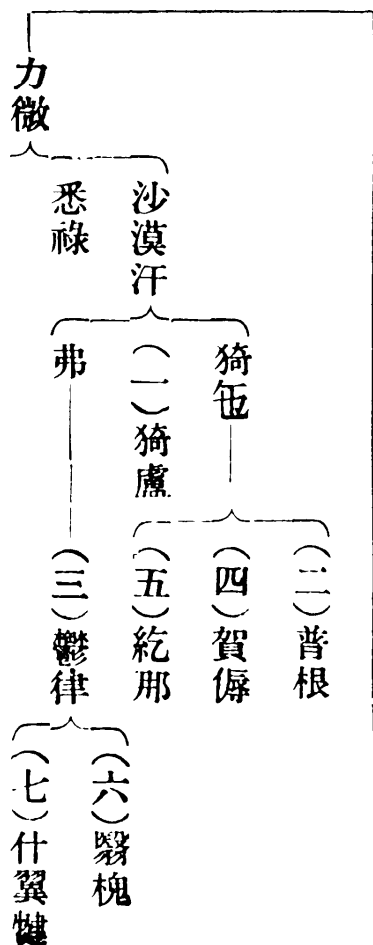 力微
沙漠汗
悉祿
猗㐌
（一）猗盧
弗
（二）普根
（四）賀傉
（五）紇那
（三）鬱律
（六）翳槐
（七）什翼犍